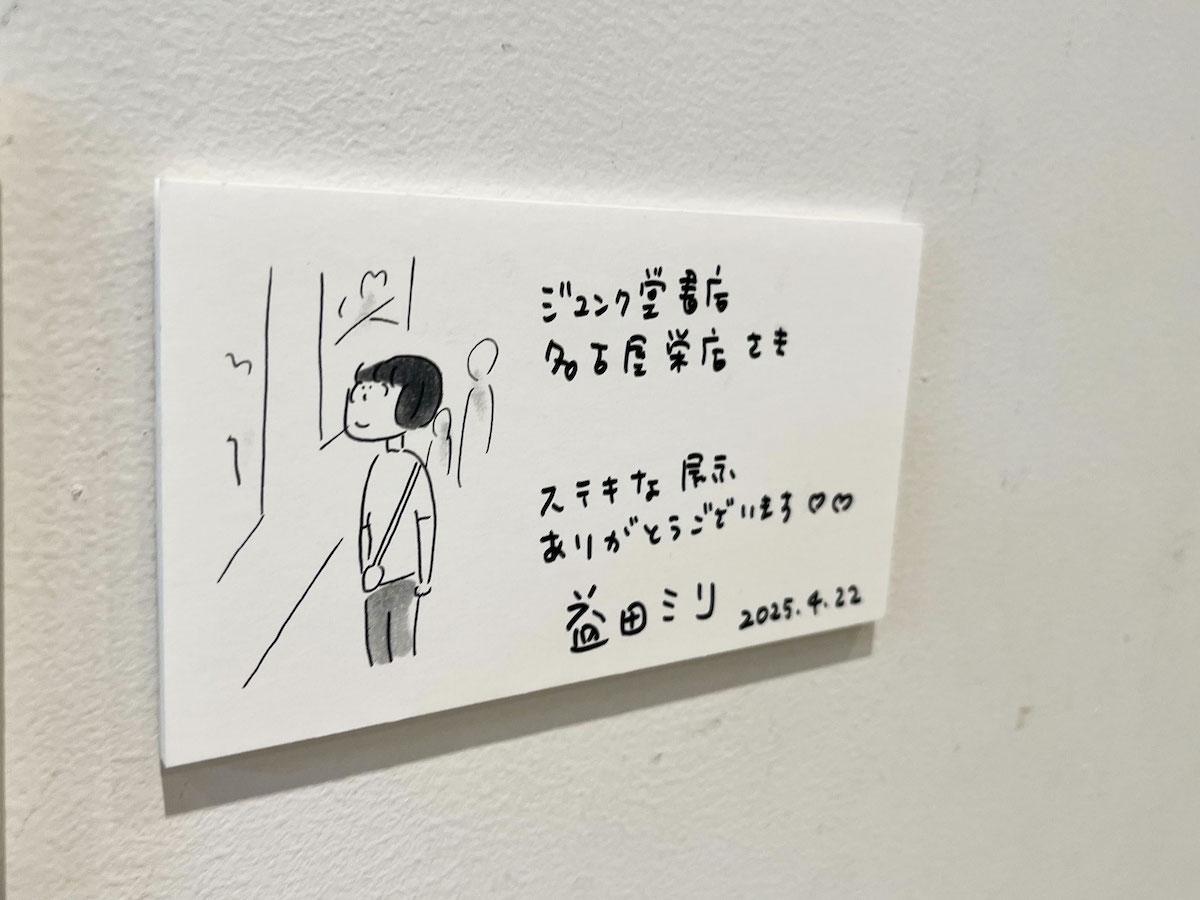 ジュンク堂書店
名古屋栄店さま
ステキな展示
ありがとうございます♡♡
益田ミリ 2025.4.22